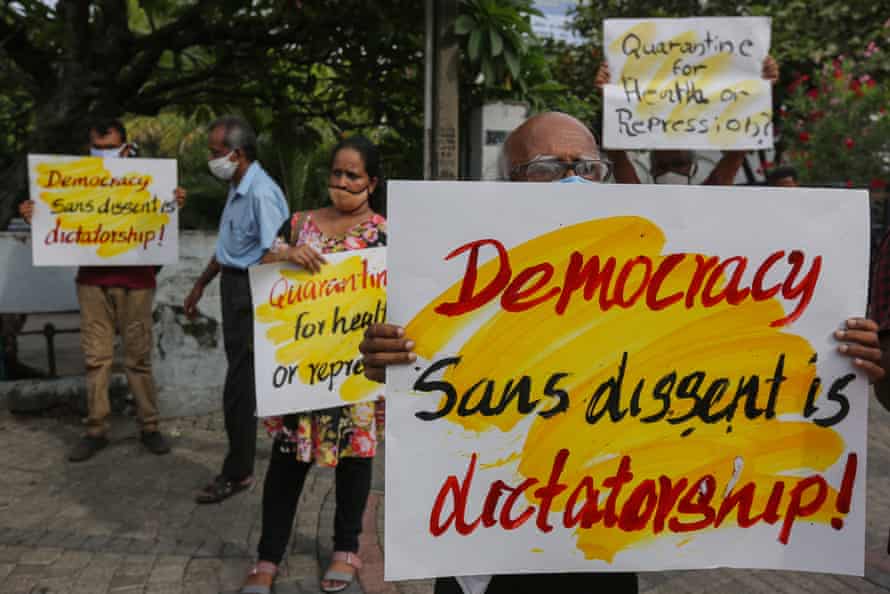 Democracy
Sans dissent is
dictatorship!
Quarantin
for healt
or repre
Quarantine
for
Health or
Repression?
Democracy
Sans dissent is
dictatorship!